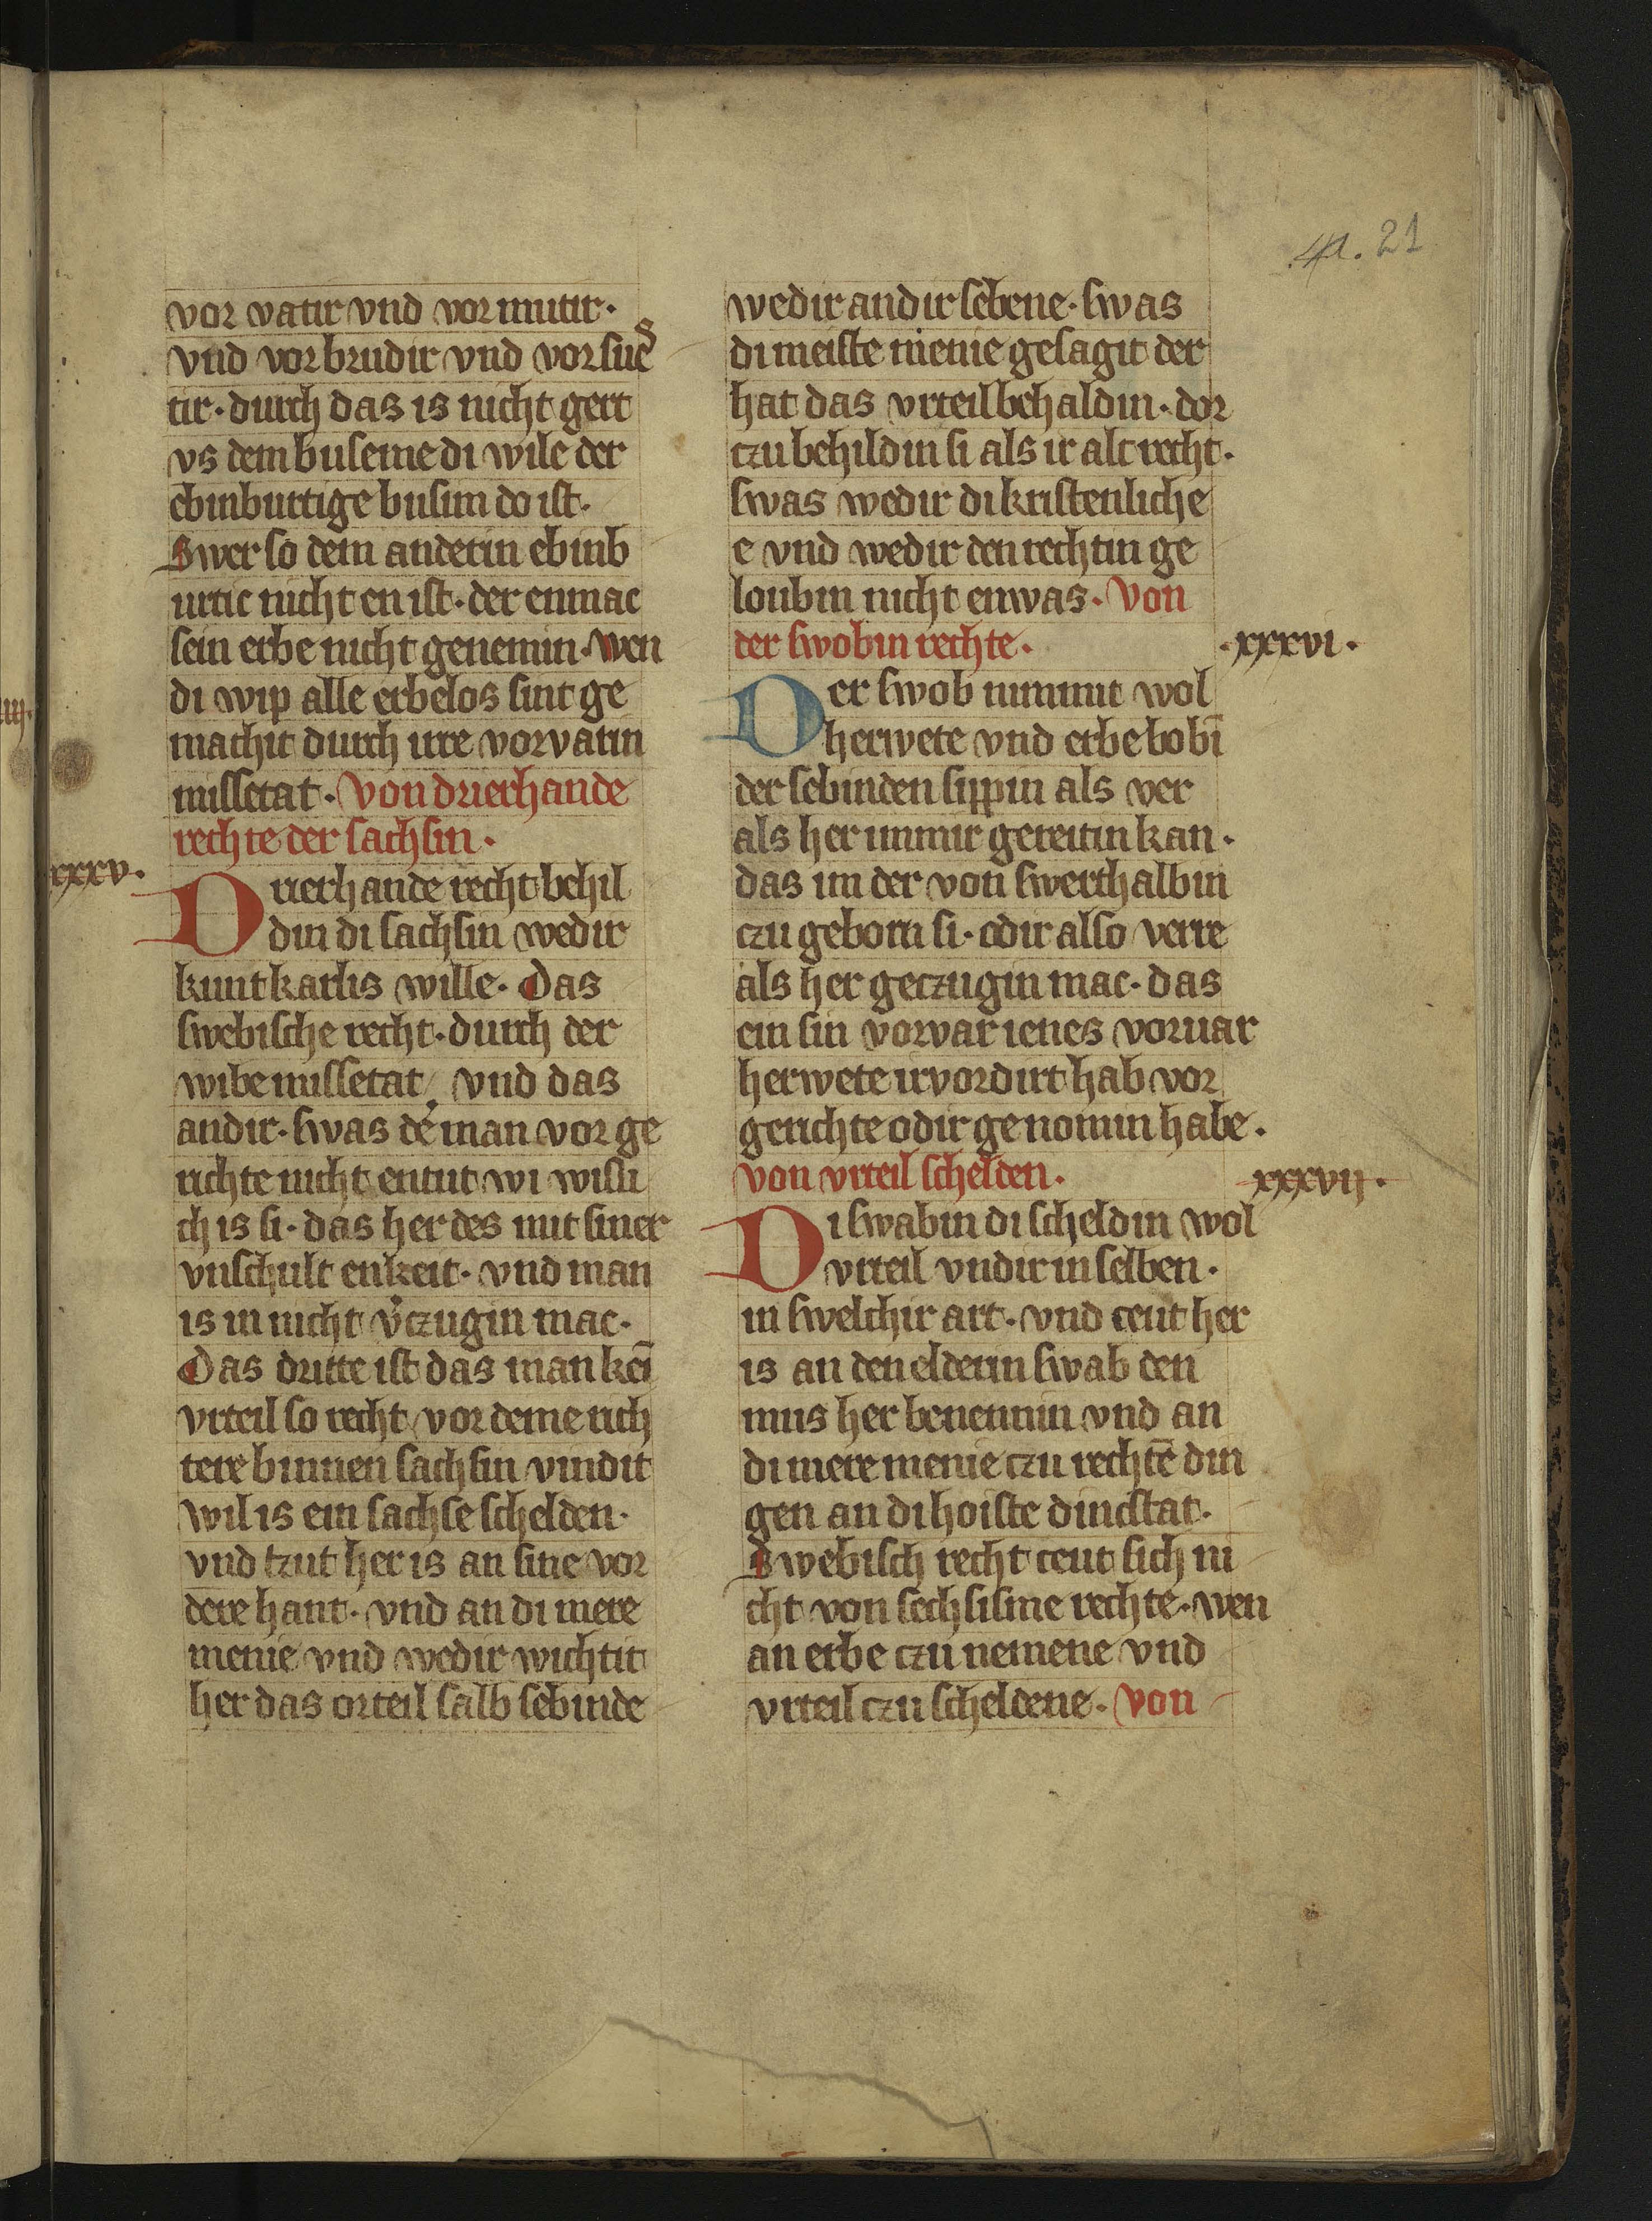 21
vor vatir vnd vor mutir·
vnd vor brudir vnd vor sueˢ
tir· durch das is nicht gert
vs dem buseme di wile der
ebinburtige busim do ist·
Swer so dem anderin ebinb
urtic nicht en ist· der enmac
sein erbe nicht genemin· wen
di wip alle erbelos sint ge
machit durch irre vorvatin
missetat· Von drierhande
rechte der sachsin·
xxxv·
Drierhande recht behil
din di sachsin wedir
kunt karlis wille· Das
swebische recht· durch der
wibe missetat· vnd das
andir· swas de man vor ge
richte nicht entut wi wissi
ch is si· das her des mit siner
vnschult enkeit· vnd man
is in nicht v̓czugin mac·
Das dritte ist das man kei̅
vrteil so recht vor deme rich
tere binnen sachsin vindit
wil is ein sachse schelden·
vnd tzut her is an sine vor
dere hant· vnd an di mere
menie vnd wedir wichtit
her das orteil salb sebinde
wedir andir sebene· swas
di meiste menie gesagit der
hat das vrteil behaldin· dor
czu behildin si als ir alt recht·
swas wedir di kristenliche
e vnd wedir den rechtin ge
loubin nicht enwas· Von
der swobin rechte·
·xxxvi·
Der swob nimmit wol
herwete vnd erbe bobi̅
der sebinden sippin als ver
als her immir gereitin kan·
das im der von swerthalbin
czu geborn si· odir also verre
als her geczugin mac· das
ein sin vorvar ienes voruar
herwete irvordirt hab vor
gerichte odir genomin habe·
von vrteil schelden·
xxxvij·
Di swabin di scheldin wol
vrteil vndir in selben·
in swelchir art· vnd ceut her
is an den elderin swab den
mus her benennin vnd an
di mere menie czu rechte̅ din
gen an di hoiste dincstat·
Swebisch recht ceut sich ni
cht von sechsisme rechte· wen
an erbe czu nemene vnd
vrteil czu scheldene· Von